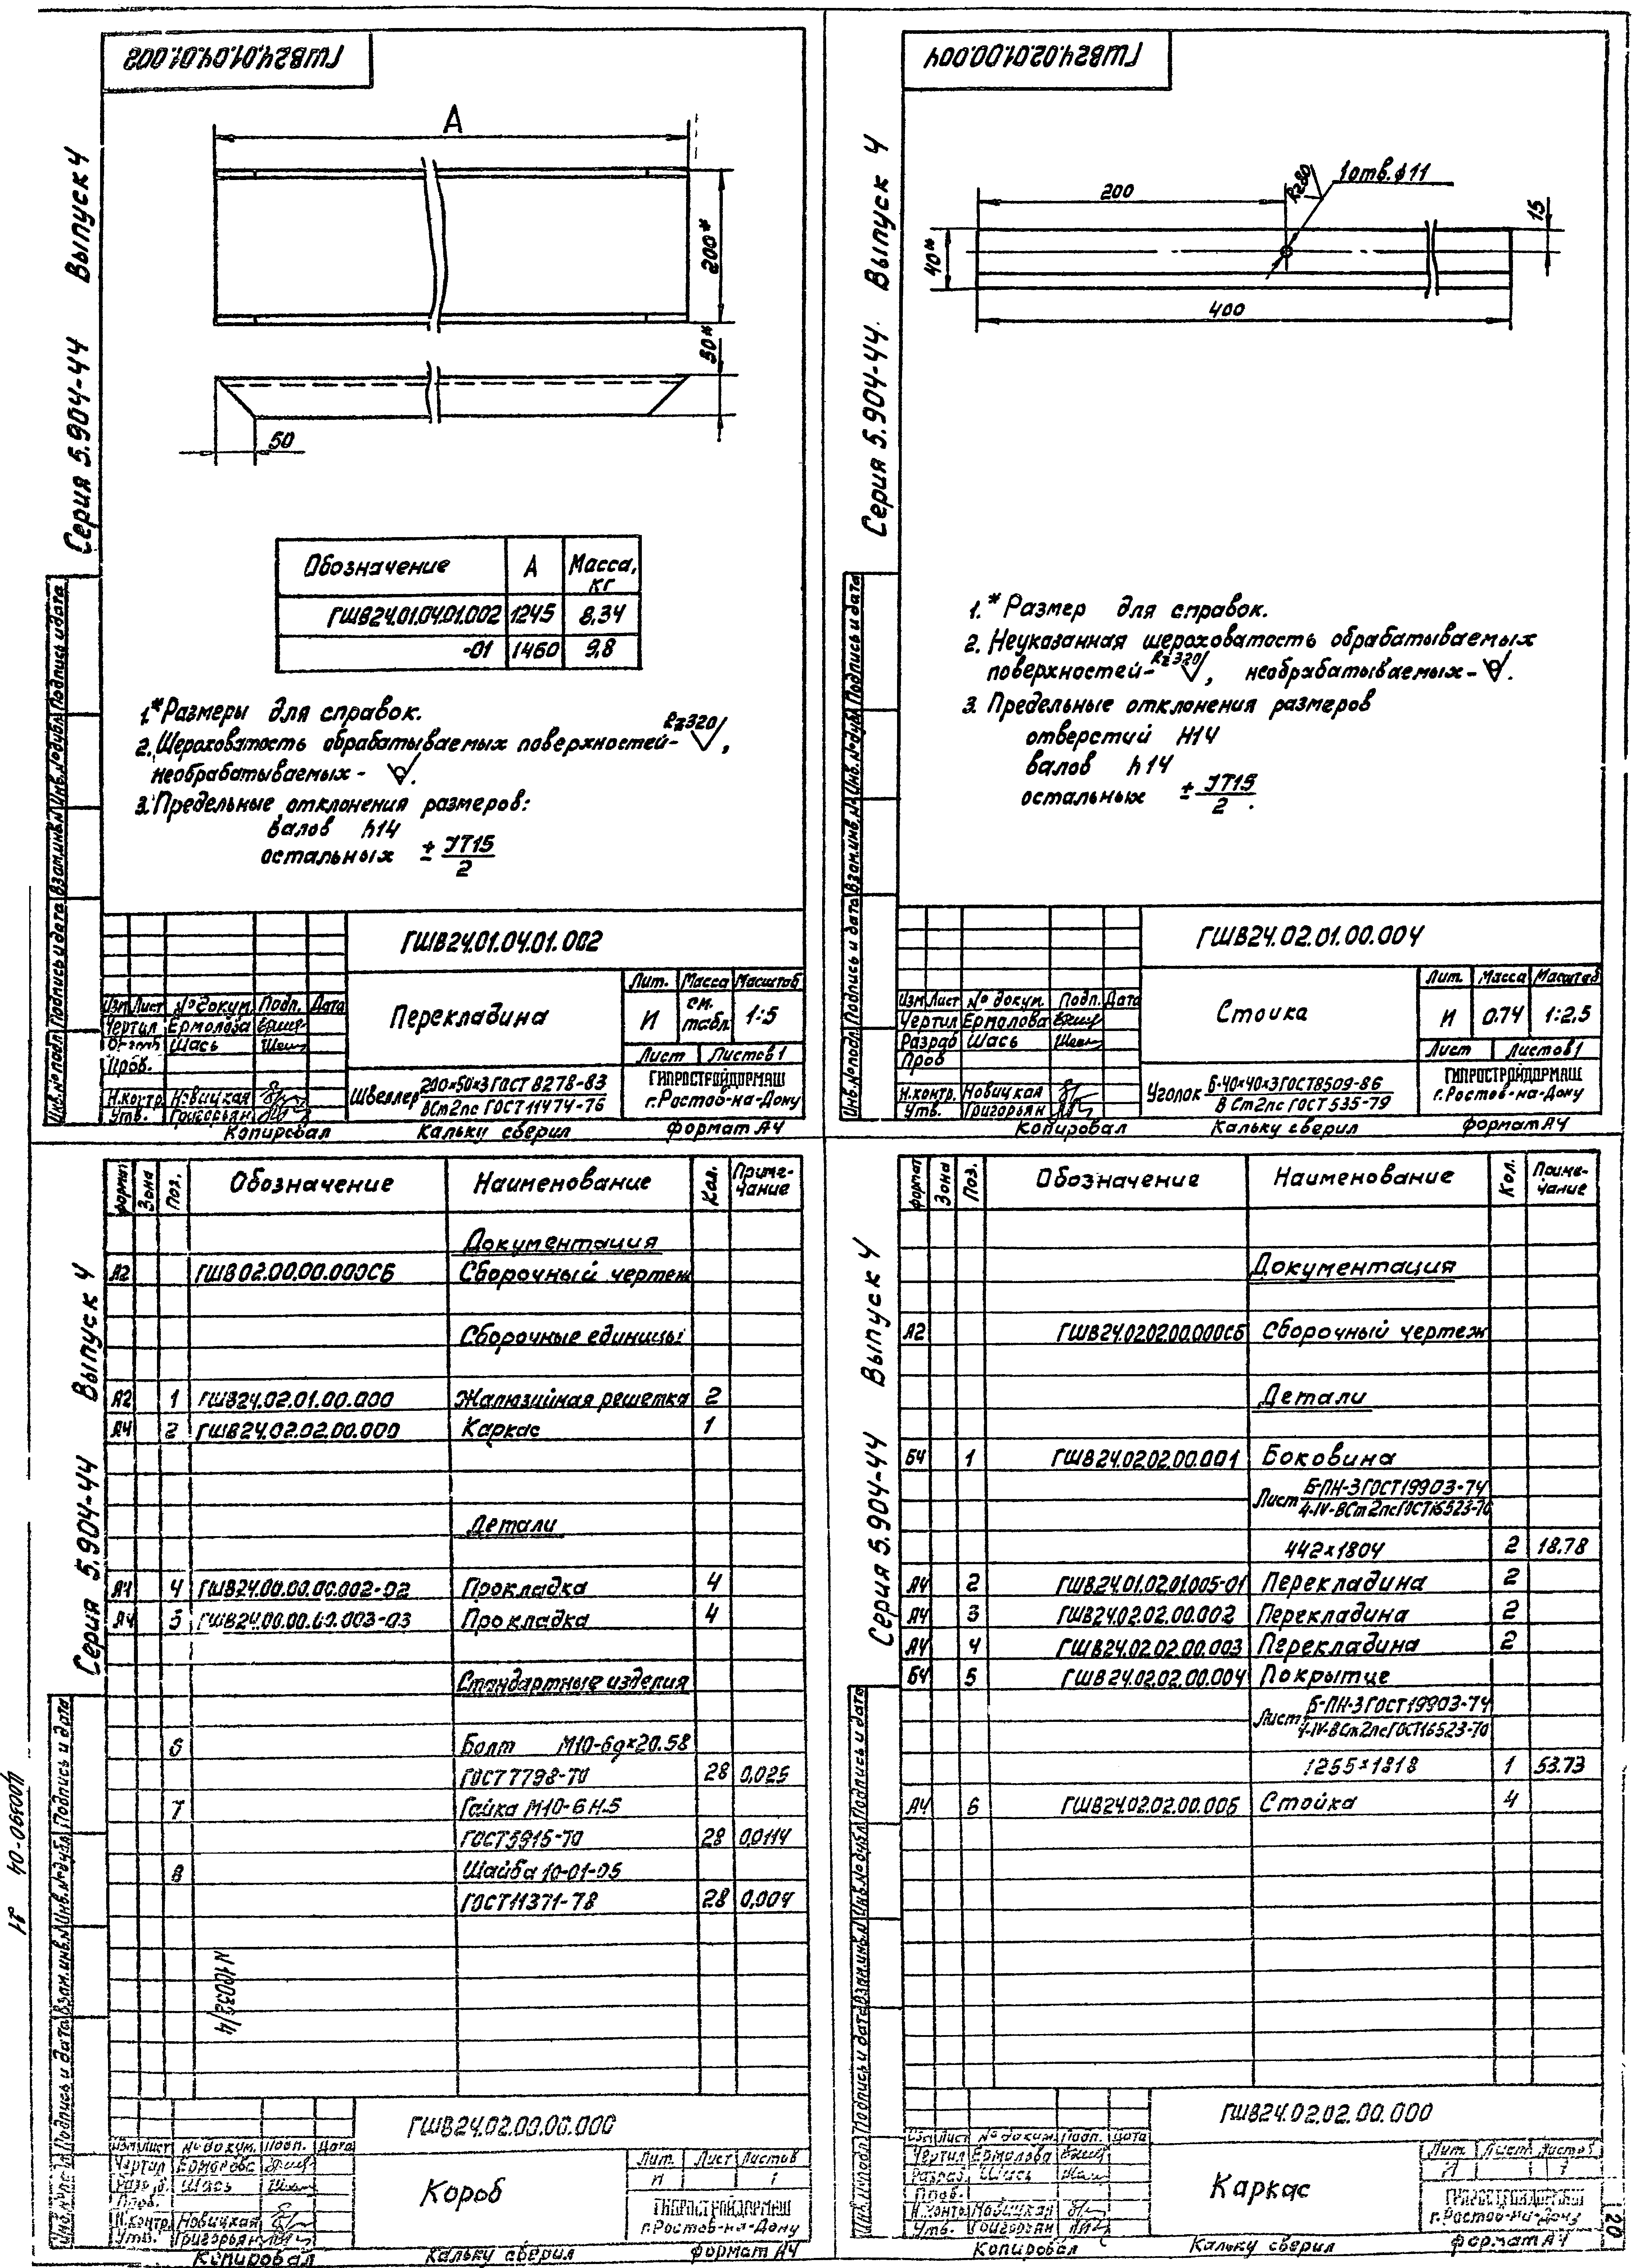 ГШВ24.01.04.01.002
Серия 5.904-44 Выпуск 4
А
200*
50*
50
Обозначение А Масса, кг
ГШВ24.01.04.01.002 1245 8,34
-01 1460 9,8
1.* Размеры для справок.
2. Шероховатость обрабатываемых поверхностей- Rz320,
необрабатываемых- .
3. Предельные отклонения размеров:
валов h14
остальных ± JT15/2
Инв.№подл. Подпись и дата Взам.инв.№ Инв.№дубл. Подпись и дата
ГШВ24.01.04.01.002
Перекладина
Лит. Масса Масштаб
И см. табл. 1:5
Лист Листов 1
Изм Лист № докум. Подп. Дата
Чертил Ермолова
Шась
Пров.
Н.контр. Новицкая
Утв. Григорьян
Швеллер 200×50×3 ГОСТ 8278-83 / ВСт2пс ГОСТ 11474-76
ГИПРОСТРОЙДОРМАШ
г.Ростов-на-Дону
Копировал Кальку сверил формат А4
ГШВ24.02.01.00.004
Серия 5.904-44. Выпуск 4
200
Rz80
1отв.ϕ11
15
40*
400
1.* Размер для справок.
2. Неуказанная шероховатость обрабатываемых
поверхностей- Rz320, необрабатываемых- .
3. Предельные отклонения размеров
отверстий H14
валов h14
остальных ± JT15/2.
Инв.№подл. Подпись и дата Взам.инв.№ Инв.№дубл. Подпись и дата
ГШВ24.02.01.00.004
Стойка
Лит. Масса Масштаб
И 0.74 1:2,5
Лист Листов 1
Изм Лист № докум. Подп. Дата
Чертил Ермолова
Разраб Шась
Пров
Н.контр. Новицкая
Утв. Григорьян
Уголок Б-40×40×3 ГОСТ 8509-86 / ВСт2пс ГОСТ 535-79
ГИПРОСТРОЙДОРМАШ
г.Ростов-на-Дону
Копировал Кальку сверил формат А4
Серия 5.904-44 Выпуск 4
формат Зона Поз. Обозначение Наименование Кол. Примечание
Документация
А2 ГШВ02.00.00.000СБ Сборочный чертеж
Сборочные единицы
А2 1 ГШВ24.02.01.00.000 Жалюзийная решетка 2
А4 2 ГШВ24.02.02.00.000 Каркас 1
Детали
А4 4 ГШВ24.00.00.00.002-02 Прокладка 4
А4 5 ГШВ24.00.00.00.003-03 Прокладка 4
Стандартные изделия
6 Болт М10-6g×20.58
ГОСТ 7798-70 28 0,025
7 Гайка М10-6Н.5
ГОСТ 5915-70 28 0,0114
8 Шайба 10-01-05
ГОСТ 11371-78 28 0,004
N10032/4
Подпись и дата Взам.инв.№ Инв.№дубл. Подпись и дата
ГШВ24.02.00.00.000
Короб
Лит. Лист Листов
И 1
Изм Лист № докум. Подп. Дата
Чертил
Разраб. Шась
Пров.
Н.контр. Новицкая
Утв. Григорьян
ГИПРОСТРОЙДОРМАШ
г.Ростов-на-Дону
Копировал Кальку сверил формат А4
Серия 5.904-44 Выпуск 4
формат Зона Поз. Обозначение Наименование Кол. Примечание
Документация
А2 ГШВ24.02.02.00.000СБ Сборочный чертеж
Детали
Б4 1 ГШВ24.02.02.00.001 Боковина
Лист Б-ПН-3 ГОСТ 19903-74 / 4-IV-ВСт2пс ГОСТ 16523-70
442×1804 2 18.78
А4 2 ГШВ24.01.02.01.005-01 Перекладина 2
А4 3 ГШВ24.02.02.00.002 Перекладина 2
А4 4 ГШВ24.02.02.00.003 Перекладина 2
Б4 5 ГШВ24.02.02.00.004 Покрытие
Лист Б-ПН-3 ГОСТ 19903-74 / 4-IV-ВСт2пс ГОСТ 16523-70
1255×1818 1 53.73
А4 6 ГШВ24.02.02.00.005 Стойка 4
Подпись и дата Взам.инв.№ Инв.№дубл. Подпись и дата
ГШВ24.02.02.00.000
Каркас
Лит. Лист Листов
И 1
Изм Лист № докум. Подп. Дата
Чертил Ермолова
Разраб. Шась
Пров.
Н.контр. Новицкая
Утв. Григорьян
ГИПРОСТРОЙДОРМАШ
г.Ростов-на-Дону
Копировал Кальку сверил формат А4
20